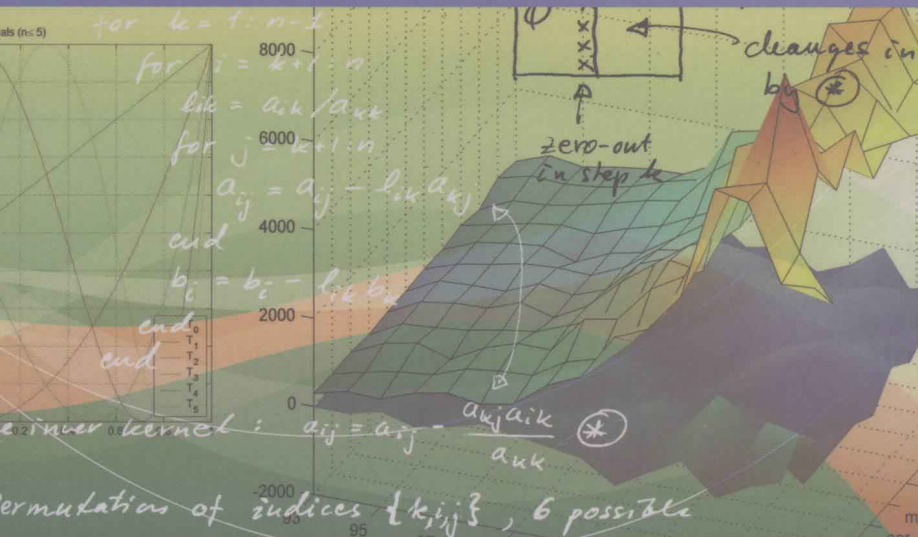 als (n≤ 5)
for k = 1 : n-1
for i = k+1 : n
lik = aik / akk
for j = k+1 : n
aij = aij - lik akj
end
bi = bi - lik bk
end
end
8000
6000
4000
2000
0
-2000
φ
x
x
x
changes in
by *
zero-out
in step k
T0
T1
T2
T3
T4
T5
0.2
0.8
e inner kernel : aij = aij - akj aik / akk *
ermutation of indices {k,i,j} , 6 possible
93
95
m